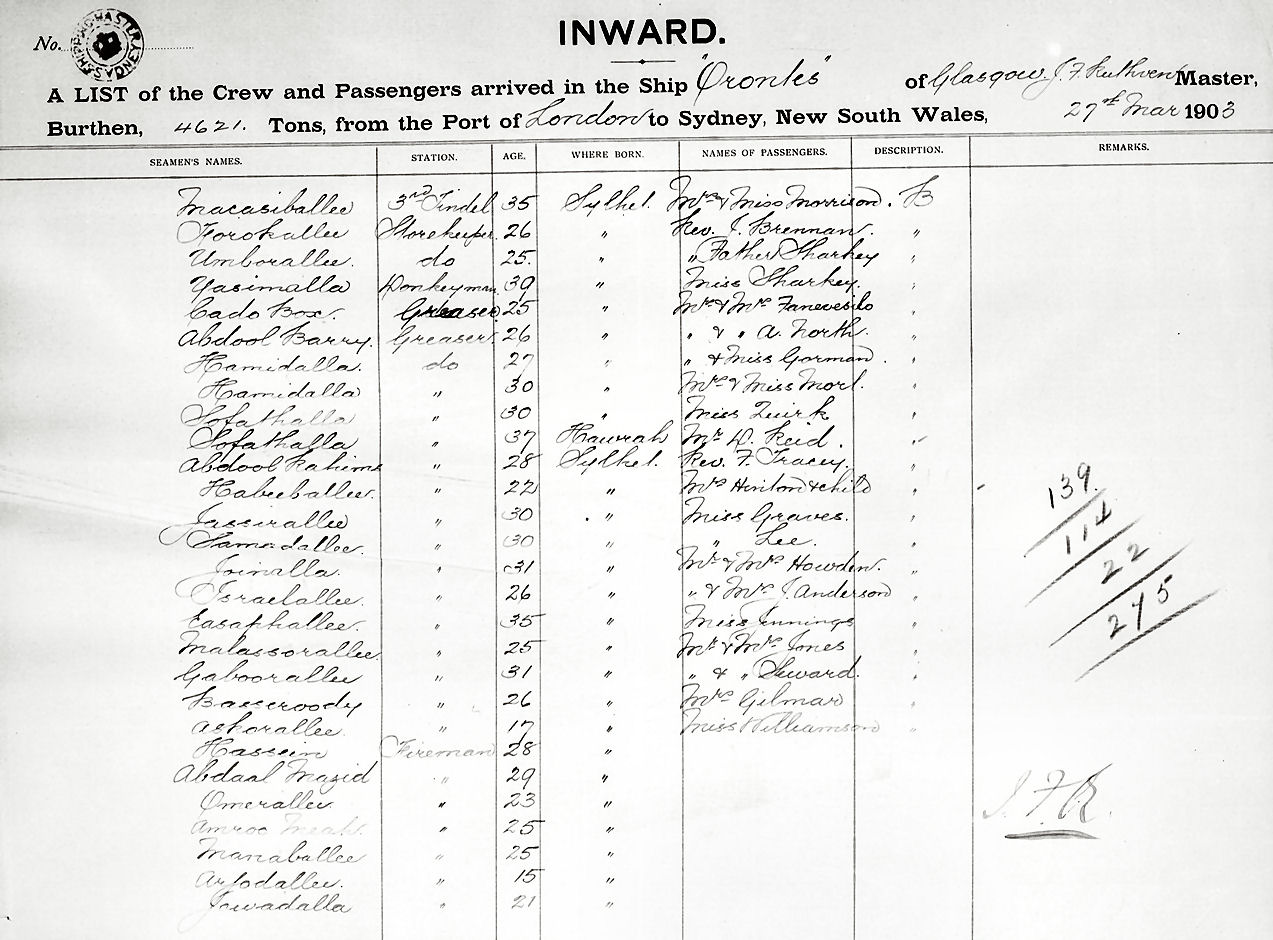 INWARD.
No.
SHIPPING MASTER SYDNEY
A LIST of the Crew and Passengers arrived in the Ship "Orontes" of Glasgow, J. F. Ruthven Master,
Burthen, 4621. Tons, from the Port of London to Sydney, New South Wales, 27th Mar 1903
SEAMEN'S NAMES. STATION. AGE. WHERE BORN. NAMES OF PASSENGERS. DESCRIPTION. REMARKS.
Macasiballee 3rd Tindel 35 Sylhet. Mrs & Miss Morrison. B
Forokallee Storekeeper. 26 " Rev. J. Brennan. "
Umborallee. do 25. " " Father Sharkey "
Yasimalla Donkeyman 39 " Miss Sharkey. "
Cado Box. Greaser 25 " Mr & Mrs "
Abdool Barry. Greaser. 26 " " & " A. North. "
Hamidalla. do 27 " " & Miss Gorman. "
Hamidalla " 30 " Mrs & Miss "
Sofathalla " 30 " Miss Quirk "
Sofathalla " 37 Howrah Mr D. Reid. "
Abdool Rahim " 28 Sylhet. Rev. F. Tracey. "
Habeeballee. " 22 " Mrs Hinton & child "
Jassirallee " 30 " Miss Graves. "
Samedallee. " 30 " " Lee. "
Joinalla. " 31 " Mr & Mrs Howden. "
Israelallee. " 26 " " & Mrs J. Anderson "
Easaphallee. " 35 " Miss Jennings "
Malassorallee. " 25 " Mr & Mrs Jones "
Gaboorallee " 31 " " & " Seward. "
Basseroody " 26 " Mrs Gilmar "
Askorallee. " 17 " Miss Williamson "
Hassein Fireman 28 "
Abdaal Mazid " 29 "
Omerallee " 23 "
Amroo Meah. " 25 "
Manaballee " 25 "
Arfodallee. " 15 "
Jowadalla " 21 "
139.
114
22
275
J. F. R.